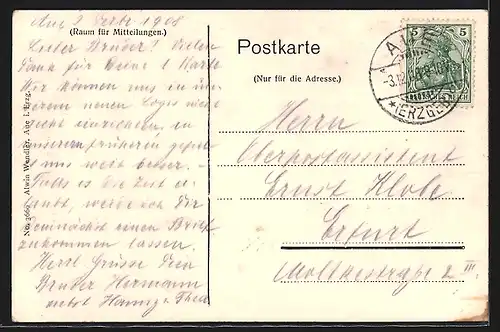 Aue 2 Dezbr 1908
(Raum für Mitteilungen.)
Lieber Bruder! Vielen
Dank für Deine l. Karte
Wir können uns in un-
serem neuen Logis nicht
gut einrichten, in
unserem früheren gefiel
es uns weit besser. –
Falls es die Zeit er-
laubt, werde ich Dir
demnächst einen Brief
zukommen lassen.
Herzl Grüsse Dein
Bruder Hermann
nebst Hanny u Thea
No. 3666 Alwin Wendler, Aue i. Erzg.
Postkarte
(Nur für die Adresse.)
5 5
AUE
-3.12.
*(ERZGEB.)
Herrn
Oberpostassistent
Ernst Klobe
Erfurt
Moltkestraße 2 III